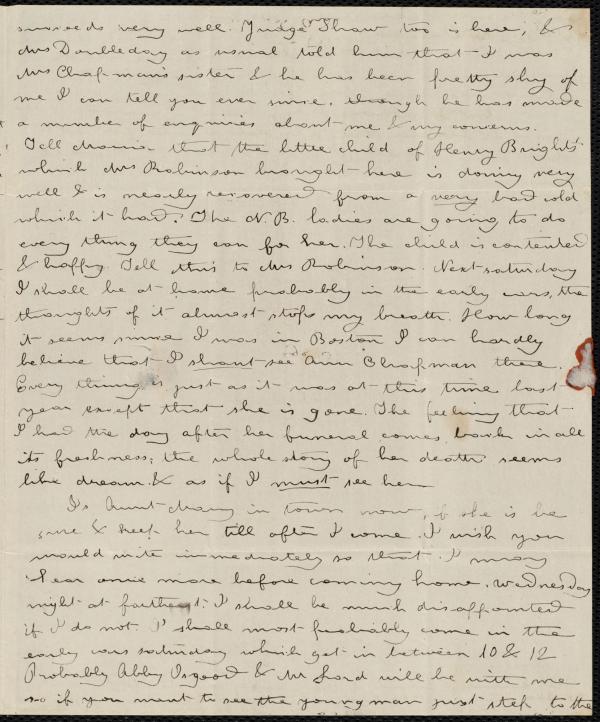 succeeds very well. Judge Shaw too is here, &
Mrs Doubleday as usual told him that I was
Mrs Chapman's sister & he has been pretty shy of
me I can tell you ever since, though he has made
a number of enquiries about me & my concerns.
Tell Maria that the little child of Henry Brights'
which Mrs Robinson brought here is doing very
well & is nearly recovered from a very bad cold
which it had. The N.B. ladies are going to do
every thing they can for her. The child is contented
& happy. Tell this to Mrs Robinson. Next saturday
I shall be at home probably in the early cars, the
thoughts of it almost stops my breath. How long
it seems since I was in Boston I can hardly
believe that I shant see Ann Chapman there.
Every thing is just as it was at this time last
year except that she is gone. The feeling that
I had the day after her funeral comes back in all
its freshness; the whole story of her death seems
like dream & as if I must see her
Is Aunt Mary in town now, if she is be
sure & keep her till after I come. I wish you
would write immediately so that I may
hear once more before coming home. Wednesday
night at farthest. I shall be much disappointed
if I do not. I shall most probably come in the
early cars saturday which get in between 10 & 12
Probably Abby Osgood & Mr Lord will be with me
so if you want to see the young man just step to the